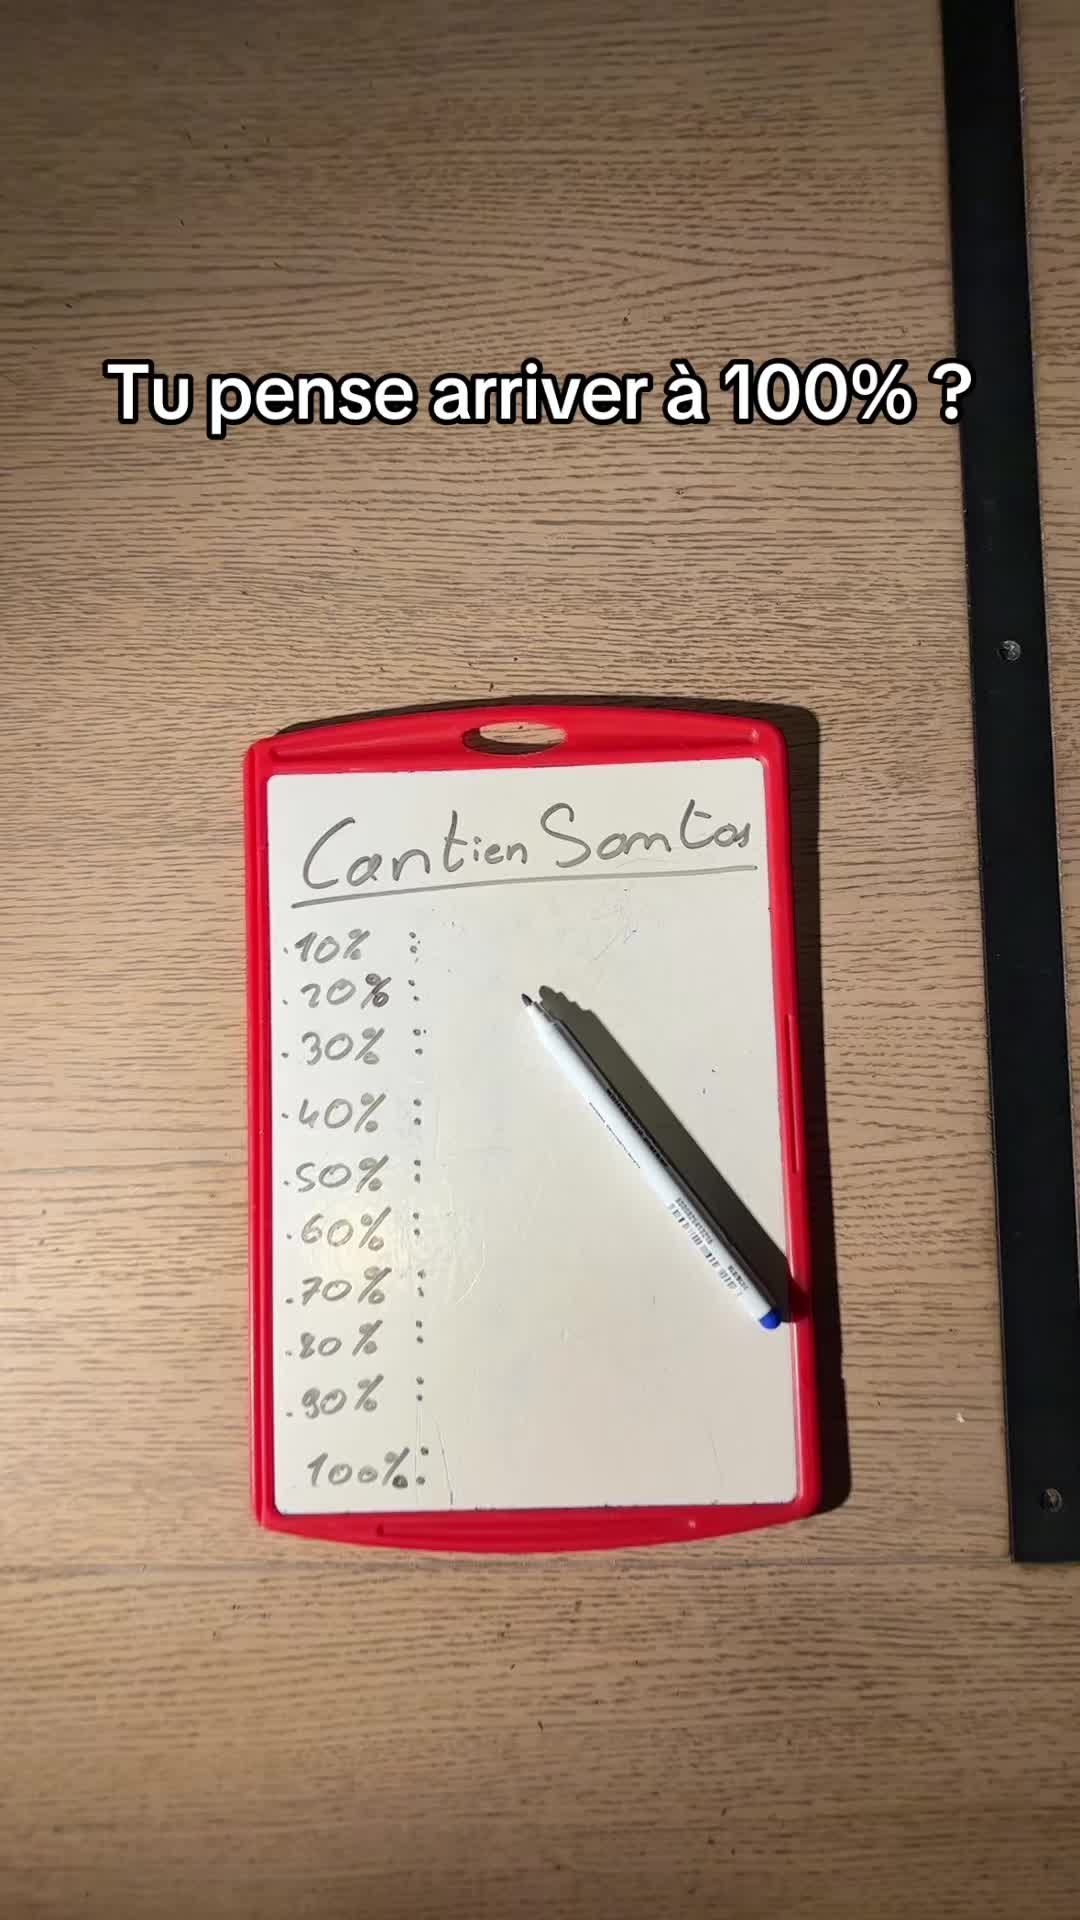 Tu pense arriver à 100% ?
Cantien Santos
.10% :
.20% :
.30% :
.40% :
.50% :
.60% :
.70% :
.80% :
.90% :
100% :